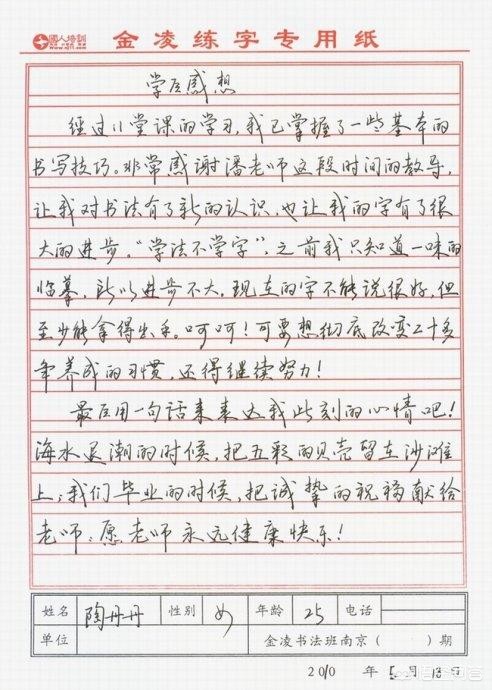 國人培訓
www.gjrl.com
金凌练字专用纸
学后感想
经过11堂课的学习,我已掌握了一些基本的
书写技巧。非常感谢潘老师这段时间的教导,
让我对书法有了新的认识,也让我的字有了很
大的进步。“学法不学字”,之前我只知道一味的
临摹,所以进步不大。现在的字不能说很好,但
至少能拿得出手。呵呵!可要想彻底改变二十多
年养成的习惯,还得继续努力!
最后用一句话来表达我此刻的心情吧!
海水退潮的时候,把五彩的贝壳留在沙滩
上;我们毕业的时候,把诚挚的祝福献给
老师:愿老师永远健康快乐!
姓名 陶丹丹 性别 女 年龄 25 电话
单位 金凌书法班南京( )期
2010 年 5 月 13 号